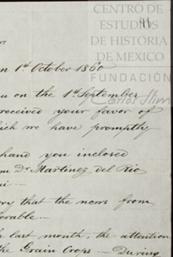 CENTRO DE
ESTUDIOS
DE HISTORIA
DE MÉXICO
FUNDACIÓN
Carlos Slim
1st October 1860
on the 1st September
received your favor of
which we have promptly
hand you inclosed
Dr Martinez del Rio
that the news from
last month, the attention
the Grain Crops — During